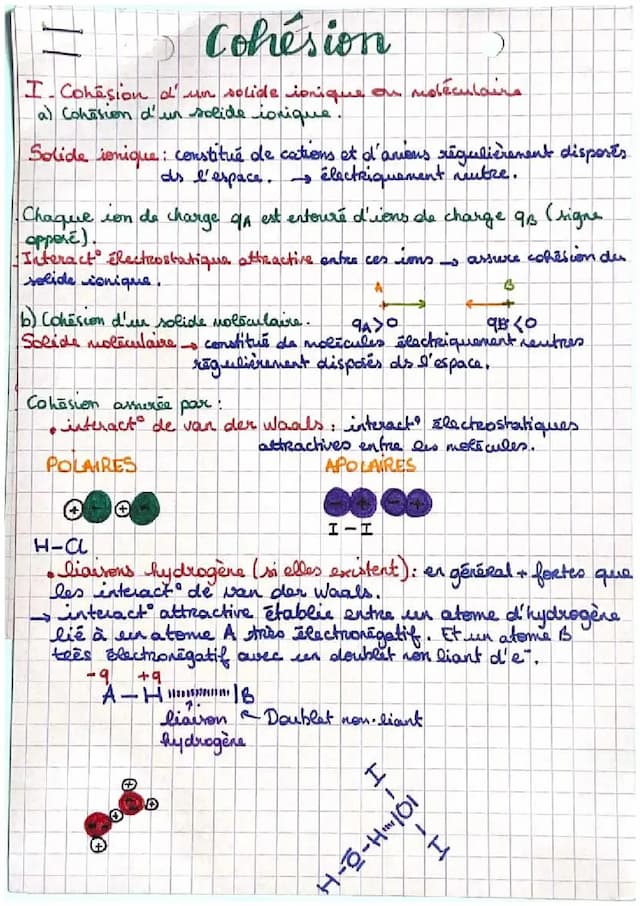 Cohésion
I - Cohésion d'un solide ionique ou moléculaire
a) Cohésion d'un solide ionique.
Solide ionique : constitué de cations et d'anions régulièrement disposés
ds l'espace. → électriquement neutre.
Chaque ion de charge qA est entouré d'ions de charge qB (signe
opposé).
Interact° électrostatique attractive entre ces ions → assure cohésion du
solide ionique.
A B
b) Cohésion d'un solide moléculaire. qA>0 qB<0
Solide moléculaire → constitué de molécules électriquement neutres
régulièrement disposés ds l'espace.
Cohésion assurée par :
• interact° de van der Waals : interact° électrostatiques
attractives entre les molécules.
POLAIRES APOLAIRES
+ - + - - + - +
I - I
H-Cl
• liaisons hydrogène (si elles existent) : en général + fortes que
les interact° de van der Waals.
→ interact° attractive établie entre un atome d'hydrogène
lié à un atome A très électronégatif. Et un atome B
très électronégatif avec un doublet non liant d'e-.
-q +q
A - H ıııııııııı |B
liaison ← Doublet non-liant
hydrogène
+ + + +
H-O-H ııı |O| - H - H